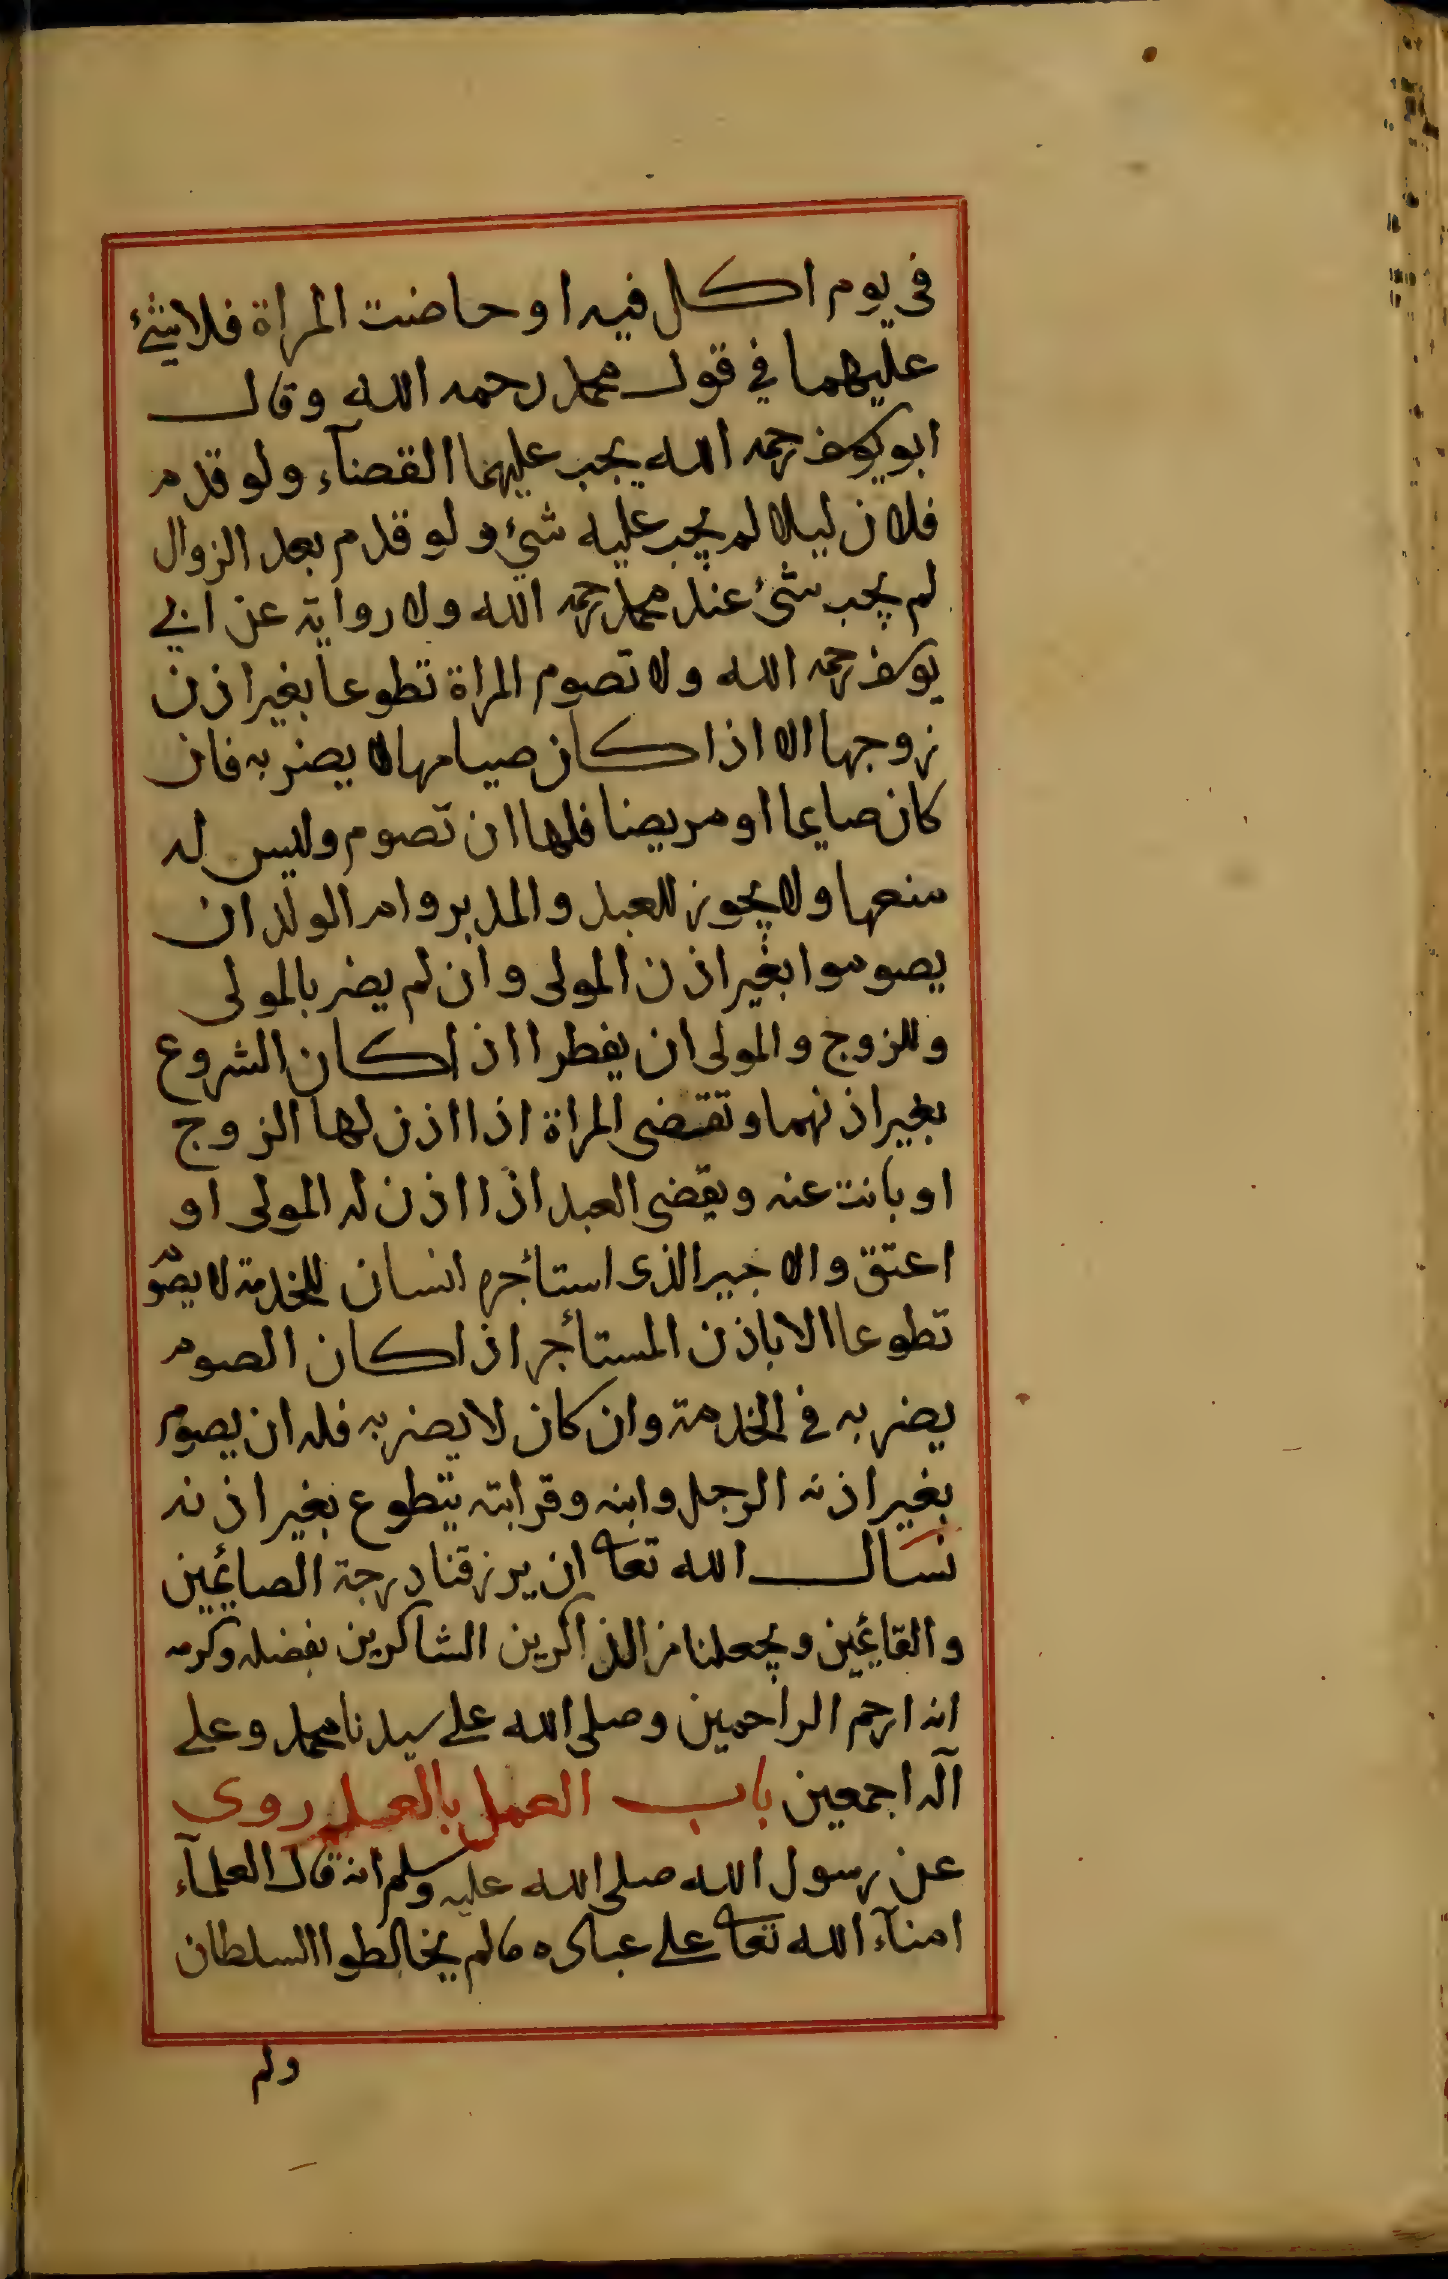 في يوم اكل فيه او حاضت المراة فلا شئ
عليهما في قول محمد رحمه الله وقال
ابو يوسف رحمه الله يجب عليهما القضآء ولو قدم
فلان ليلا لم يجب عليه شئ ولو قدم بعد الزوال
لم يجب شئ عند محمد رحمه الله ولا رواية عن ابي
يوسف رحمه الله ولا تصوم المراة تطوعا بغير اذن
زوجها الا اذا كان صيامها لا يضر به فان
كان صايما او مريضا فلها ان تصوم وليس له
منعها ولا يجوز للعبد والمدبر وام الولد ان
يصوموا بغير اذن المولى وان لم يضر بالمولى
وللزوج والمولى ان يفطرا اذا كان الشروع
بغير اذنهما وتقضى المراة اذا اذن لها الزوج
او بانت عنه ويقضى العبد اذا اذن له المولى او
اعتق والاجير الذى استأجره انسان للخدمة لا يصوم
تطوعا الا باذن المستأجر اذا كان الصوم
يضر به في الخدمة وان كان لا يضر به فله ان يصوم
بغير اذنه الرجل وابنه وقرابته يتطوع بغير اذنه
نسال الله تعا ان يرزقنا درجة الصائمين
والقائمين ويجعلنا من الذاكرين الشاكرين بفضله وكرمه
انه ارحم الراحمين وصلى الله على سيدنا محمد وعلى
آله اجمعين باب العمل بالعلم روى
عن رسول الله صلى الله عليه وسلم انه قال العلمآء
امنآء الله تعا على عباده ما لم يخالطوا السلطان
ولم